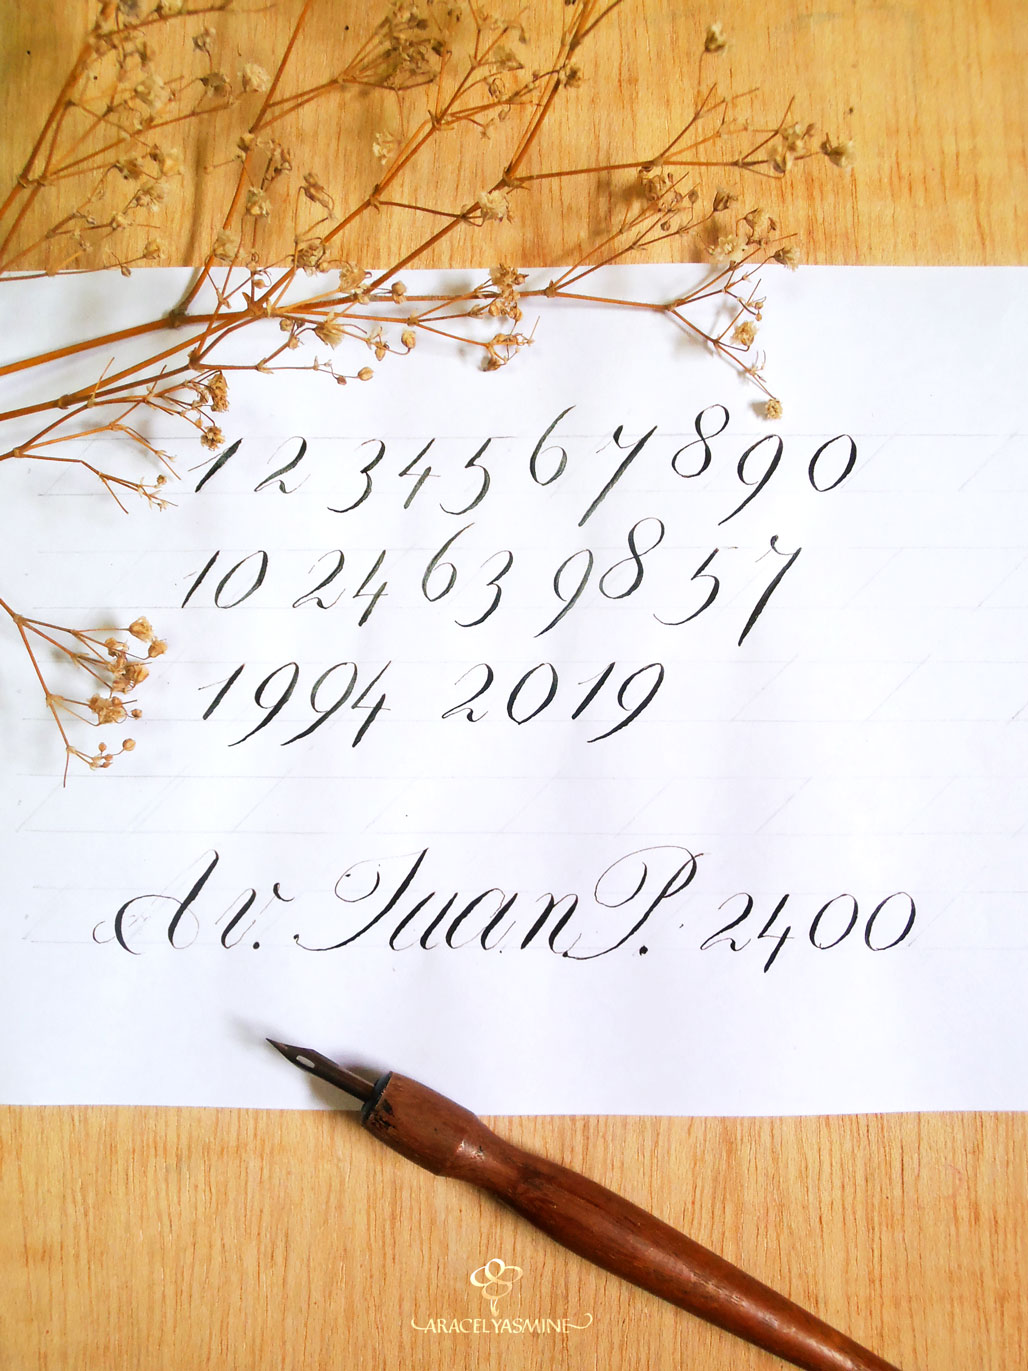 1 2 3 4 5 6 7 8 9 0
10 24 63 98 57
1994 2019
Av. Juan P. 2400
ARACELYASMINE